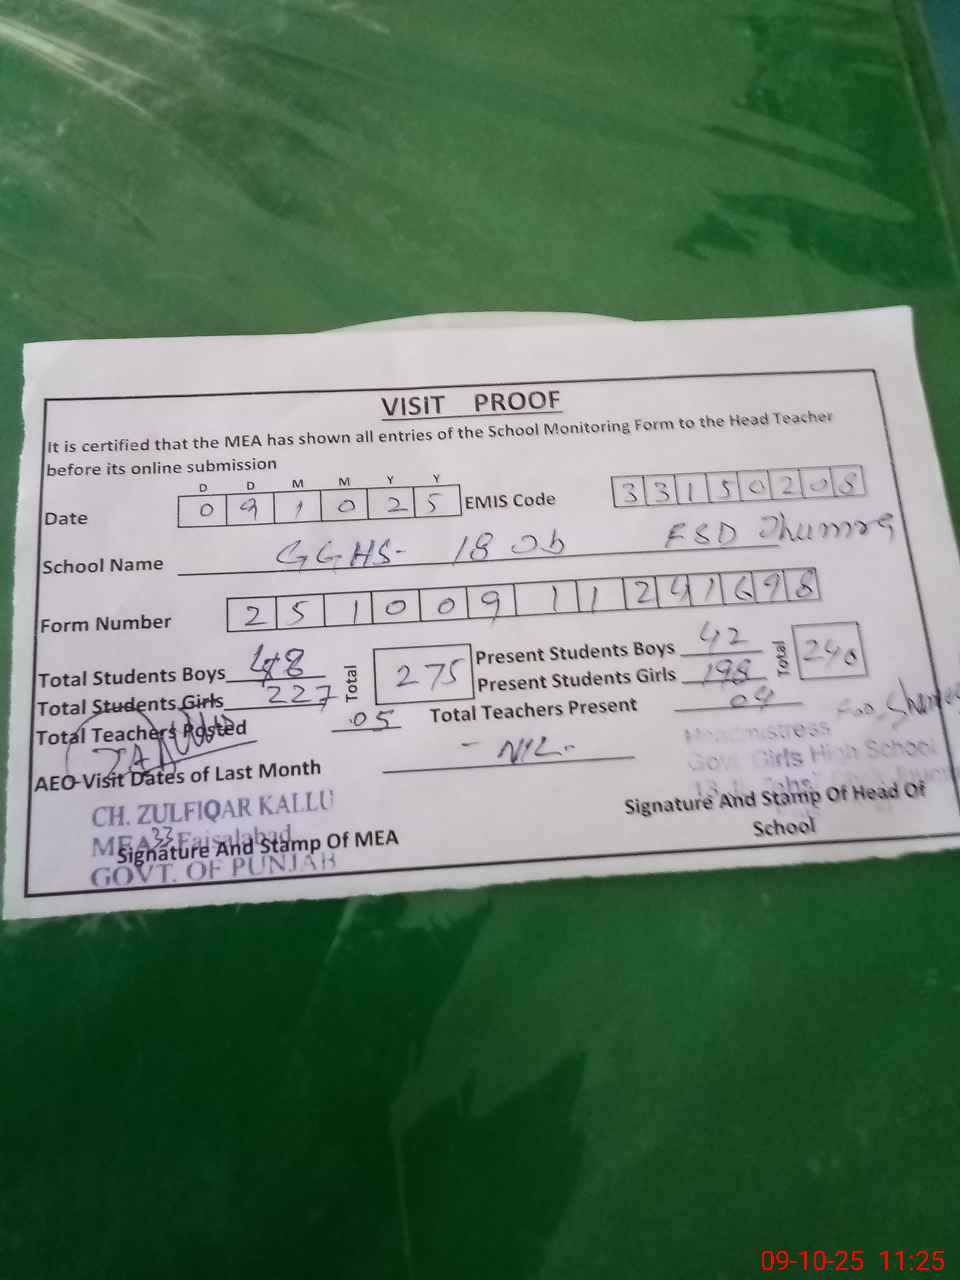 VISIT PROOF
It is certified that the MEA has shown all entries of the School Monitoring Form to the Head Teacher
before its online submission
D D M M Y Y
Date 0 9 1 0 2 5 EMIS Code 3 3 1 5 0 2 0 8
School Name GGHS- 18 FSD Jhumra
Form Number 2 5 1 0 0 9 1 1 2 4 1 6 9 8
Total Students Boys 48 Total 275 Present Students Boys 42 Total 240
Total Students Girls 227 Present Students Girls 198
Total Teachers Posted 05 Total Teachers Present 04
AEO-Visit Dates of Last Month - NIL-
Headmistress
Govt Girls High School
CH. ZULFIQAR KALLU
MEA 33 Faisalabad
GOVT. OF PUNJAB
Signature And Stamp Of MEA
Signature And Stamp Of Head Of
School
09-10-25 11:25